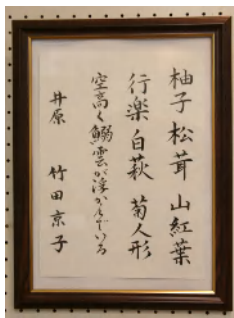 柚子 松茸 山紅葉
行楽 白萩 菊人形
空高く鰯雲が浮かんでいる
井原 竹田京子